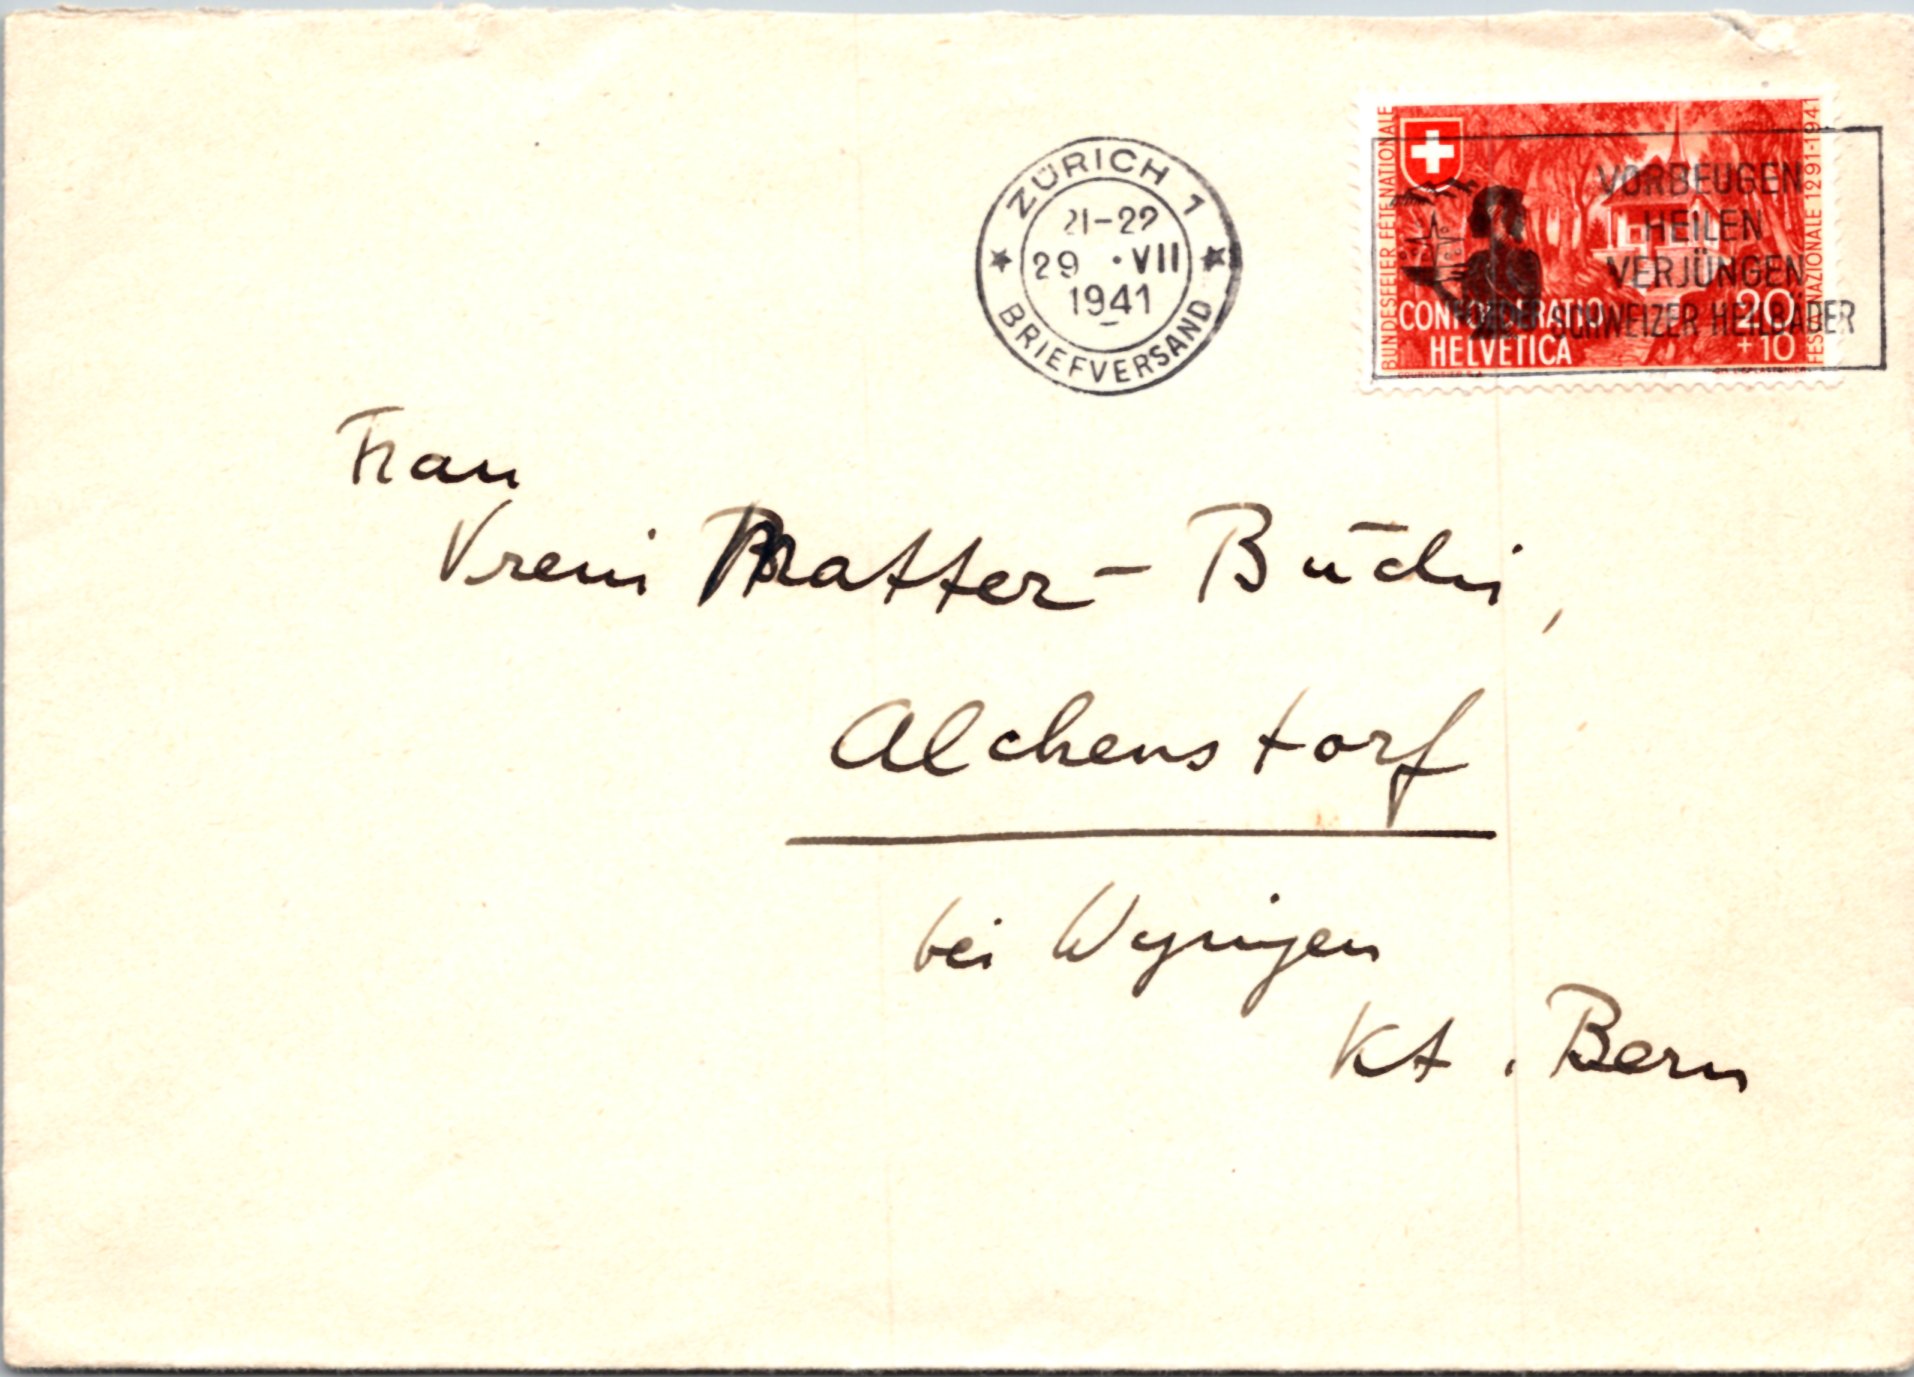 ZÜRICH 1
21-22
29 · VII
1941
BRIEFVERSAND
BUNDESFEIER FÊTE NATIONALE
FESTA NAZIONALE 1291-1941
VORBEUGEN
HEILEN
VERJÜNGEN
SCHWEIZER HEILBÄDER
CONFOEDERATIO
HELVETICA
20
+10
COURVOISIER S.A.
Frau
Vreni Matter - Büchi,
Alchenstorf
bei Wynigen
Kt. Bern